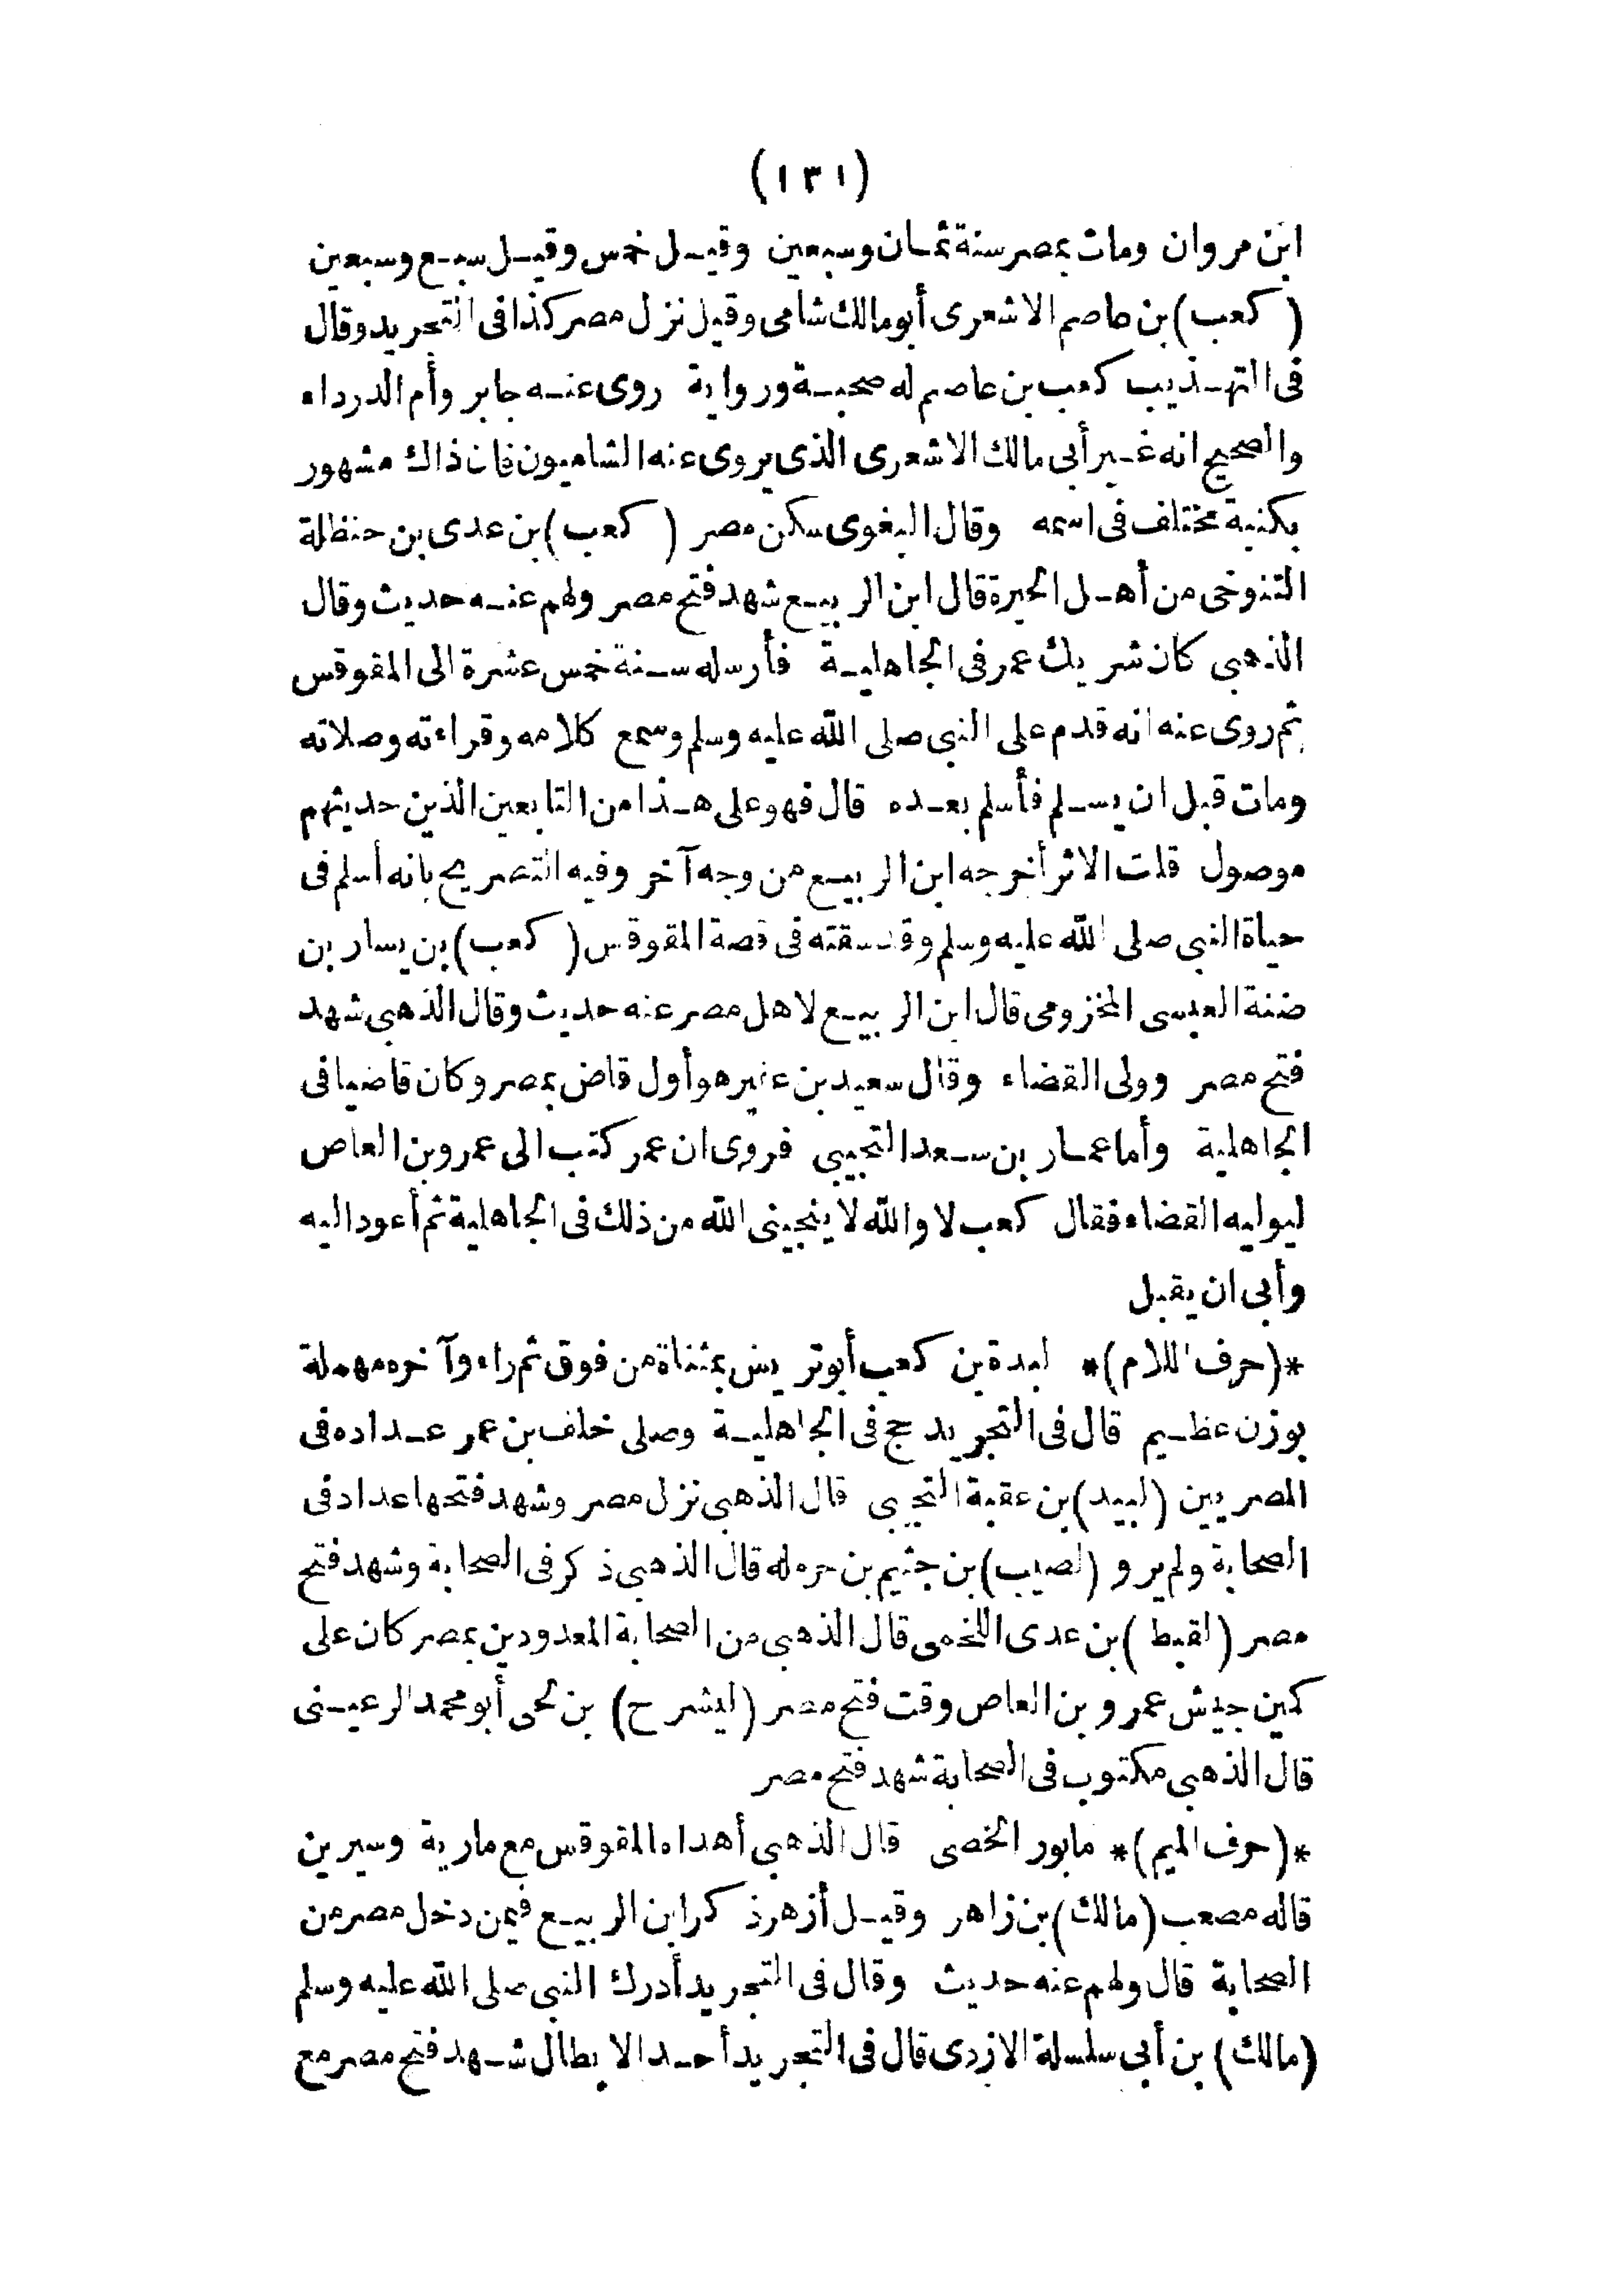 (١٣١)
ابن مروان ومات بمصر سنة ثمان وسبعين وقيل خمس وقيل سبع وسبعين
(كعب) بن عاصم الاشعرى أبو مالك شامى وقيل نزل مصر كذا فى التجريد وقال
فى التهذيب كعب بن عاصم له صحبة ورواية روى عنه جابر وأم الدرداء
والصحيح انه غير أبى مالك الاشعرى الذى يروى عنه الشاميون فان ذاك مشهور
بكنية مختلف فى اسمه وقال البغوى سكن مصر (كعب) بن عدى بن حنظلة
التنوخى من أهل الحيرة قال ابن الربيع شهد فتح مصر ولهم عنه حديث وقال
الذهبى كان شريك عمر فى الجاهلية فأرسله سنة خمس عشرة الى المقوقس
ثم روى عنه انه قدم على النبى صلى الله عليه وسلم وسمع كلامه وقراءته وصلاته
ومات قبل ان يسلم فأسلم بعده قال فهو على هذا من التابعين الذين حديثهم
موصول قلت الاثر أخرجه ابن الربيع من وجه آخر وفيه التصريح بانه أسلم فى
حياة النبى صلى الله عليه وسلم وقد سقته فى قصة المقوقس (كعب) بن يسار بن
ضنة العبسى المخزومى قال ابن الربيع لاهل مصر عنه حديث وقال الذهبى شهد
فتح مصر وولى القضاء وقال سعيد بن عفير هو أول قاض بمصر وكان قاضيا فى
الجاهلية وأما عمار بن سعد التجيبى فروى ان عمر كتب الى عمرو بن العاص
ليوليه القضاء فقال كعب لا والله لا ينجينى الله من ذلك فى الجاهلية ثم أعود اليه
وأبى ان يقبل
*(حرف اللام)* لبدة بن كعب أبو تريس بمثناة من فوق ثم راء وآخره مهملة
بوزن عظيم قال فى التجريد حج فى الجاهلية وصلى خلف بن عمر عداده فى
المصريين (لبيد) بن عقبة التجيبى قال الذهبى نزل مصر وشهد فتحها عداد فى
الصحابة ولم يرو (لصيب) بن جثيم بن حرمله قال الذهبى ذكر فى الصحابة وشهد فتح
مصر (لقيط) بن عدى اللخمى قال الذهبى من الصحابة المعدودين بمصر كان على
كمين جيش عمرو بن العاص وقت فتح مصر (ليشرح) بن لحى أبو محمد الرعينى
قال الذهبى مكتوب فى الصحابة شهد فتح مصر
*(حرف الميم)* مابور الخصى قال الذهبى أهداه المقوقس مع مارية وسيرين
قاله مصعب (مالك) بن زاهر وقيل أزهر ذكر ابن الربيع فيمن دخل مصر من
الصحابة قال ولهم عنه حديث وقال فى التجريد أدرك النبى صلى الله عليه وسلم
(مالك) بن أبى سلسلة الازدى قال فى التجريد أحد الابطال شهد فتح مصر مع